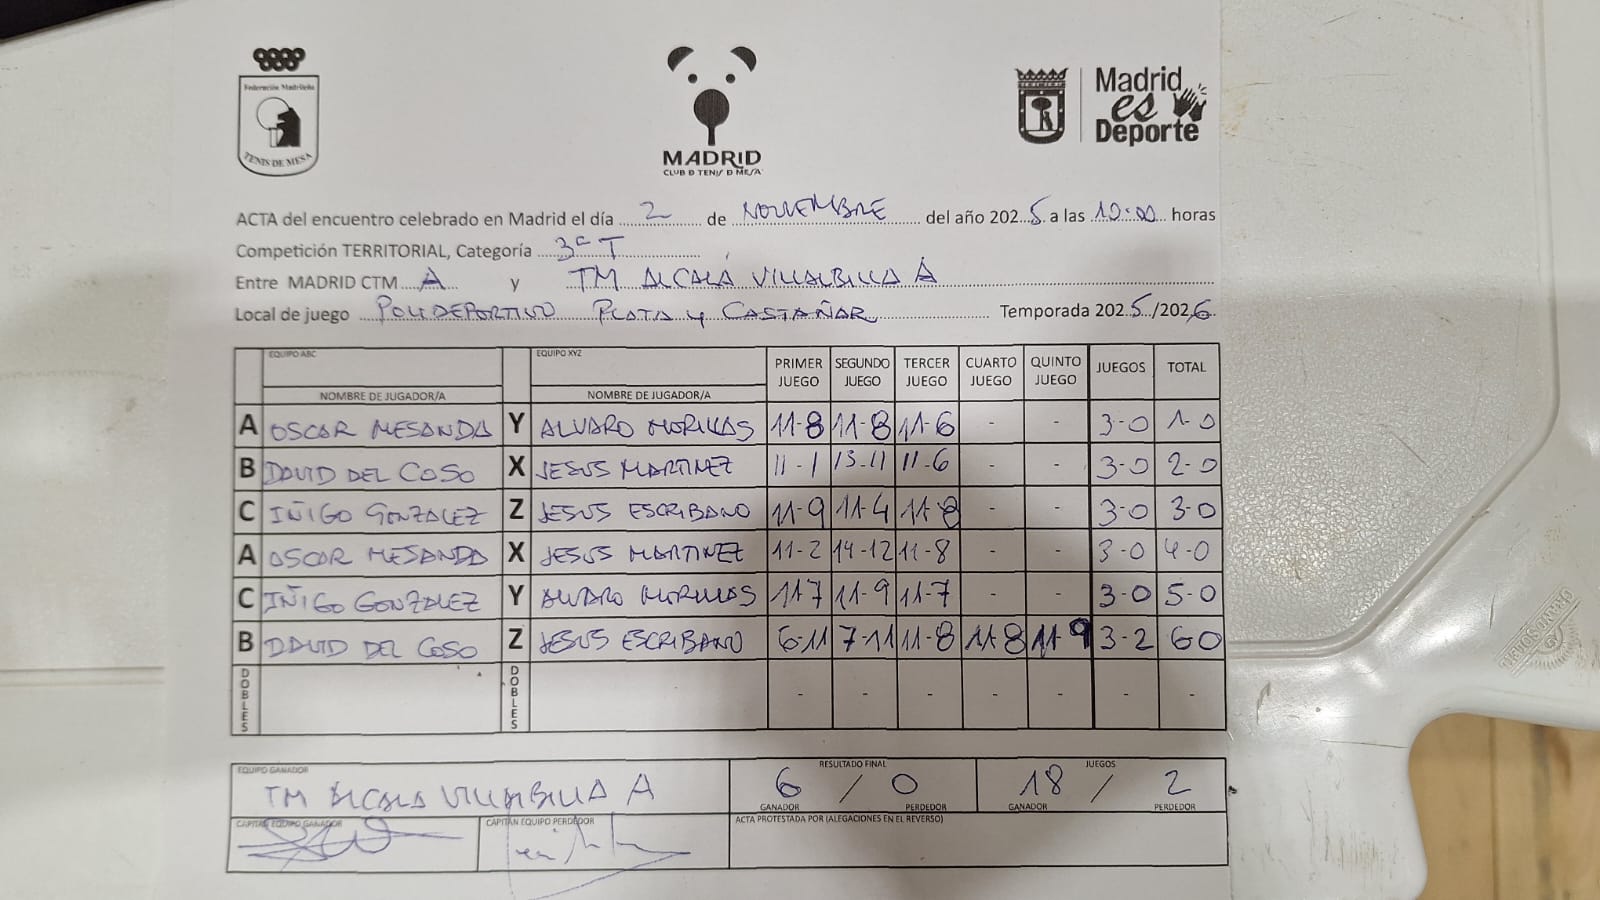 Federación Madrileña
TENIS DE MESA
MADRID
CLUB D TENIS D MESA
Madrid
es
Deporte
ACTA del encuentro celebrado en Madrid el día 2 de NOVIEMBRE del año 2025 a las 10:00 horas
Competición TERRITORIAL, Categoría 3ª T
Entre MADRID CTM A y TM ALCALÁ VILLALBILLA A
Local de juego POLIDEPORTIVO PLATA Y CASTAÑAR Temporada 2025/2026
EQUIPO ABC EQUIPO XYZ PRIMER JUEGO SEGUNDO JUEGO TERCER JUEGO CUARTO JUEGO QUINTO JUEGO JUEGOS TOTAL
NOMBRE DE JUGADOR/A NOMBRE DE JUGADOR/A
A OSCAR MESANDA Y ALVARO MORILLAS 11-8 11-8 11-6 - - 3-0 1-0
B DAVID DEL COSO X JESUS MARTINEZ 11-1 13-11 11-6 - - 3-0 2-0
C IÑIGO GONZALEZ Z JESUS ESCRIBANO 11-9 11-4 11-8 - - 3-0 3-0
A OSCAR MESANDA X JESUS MARTINEZ 11-2 14-12 11-8 - - 3-0 4-0
C IÑIGO GONZALEZ Y ALVARO MORILLAS 11-7 11-9 11-7 - - 3-0 5-0
B DAVID DEL COSO Z JESUS ESCRIBANO 6-11 7-11 11-8 11-8 11-9 3-2 6-0
DOBLES DOBLES - - - - - - -
EQUIPO GANADOR RESULTADO FINAL JUEGOS
TM ALCALA VILLALBILLA A 6 / 0 18 / 2
GANADOR PERDEDOR GANADOR PERDEDOR
CAPITÁN EQUIPO GANADOR CAPITÁN EQUIPO PERDEDOR ACTA PROTESTADA POR (ALEGACIONES EN EL REVERSO)